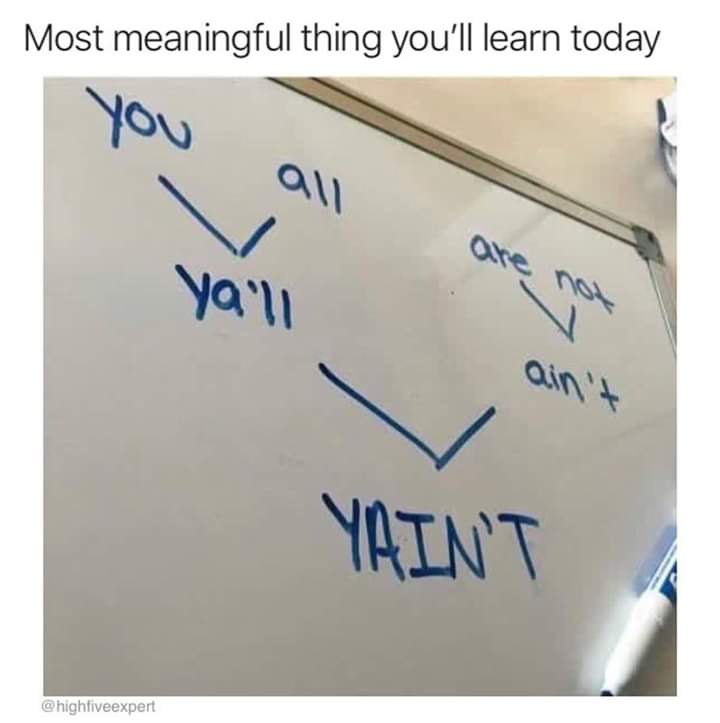 Most meaningful thing you'll learn today
you all
are not
ya'll
ain't
YAIN'T
@highfiveexpert